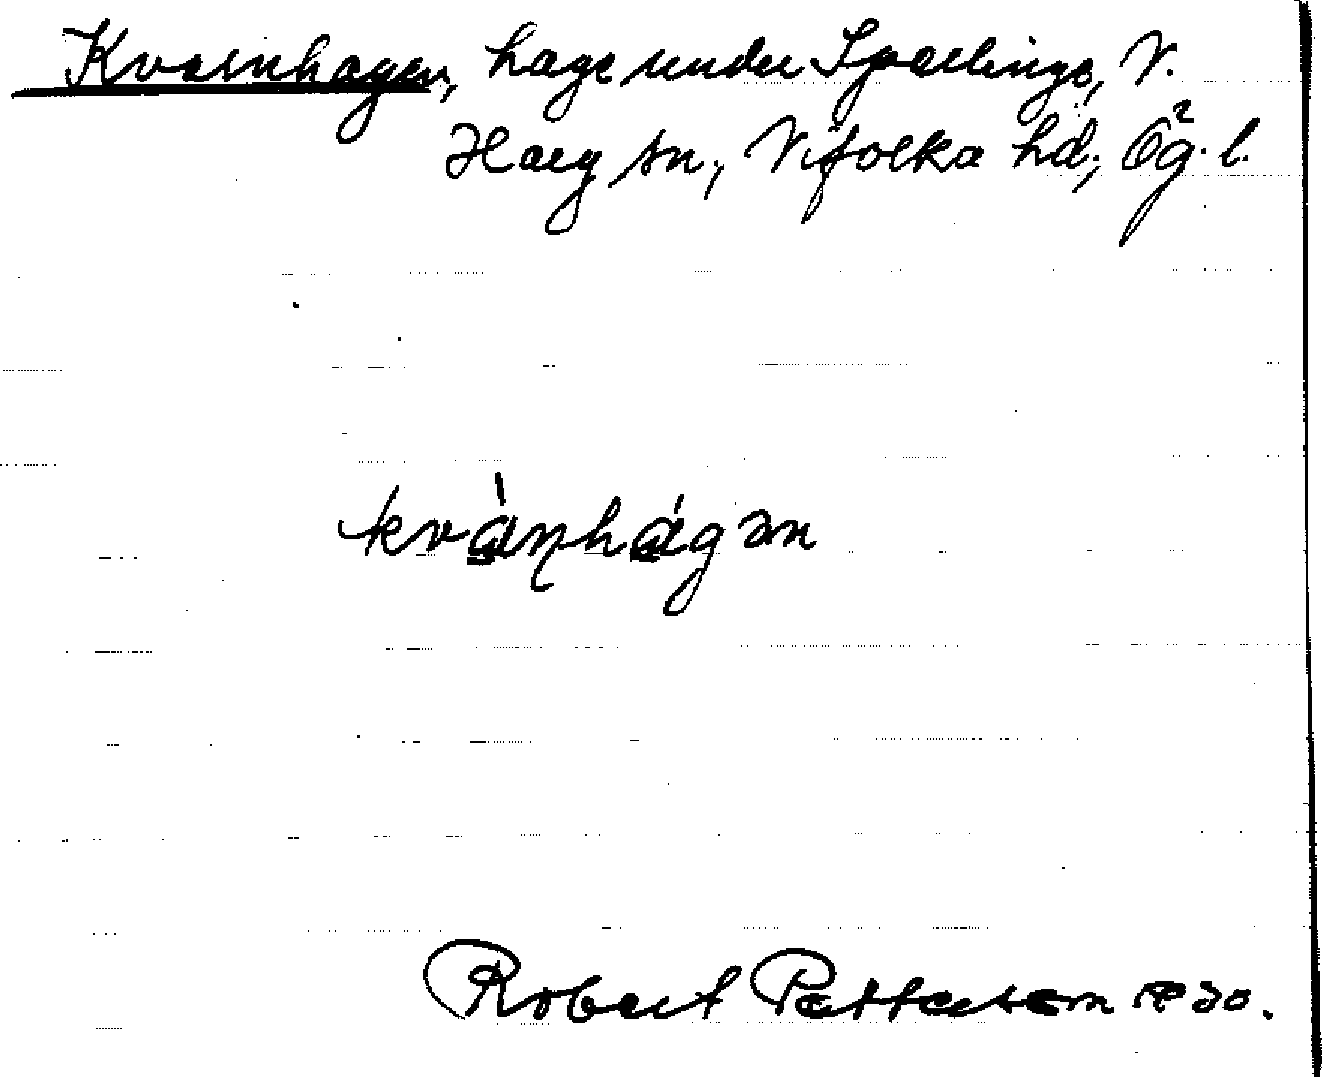 Kvarnhagen, hage under Sparlinge, V.
Harg sn, Vifolka hd, Ög. l.
kvàṇhágən
Robert Pettersson 1930.